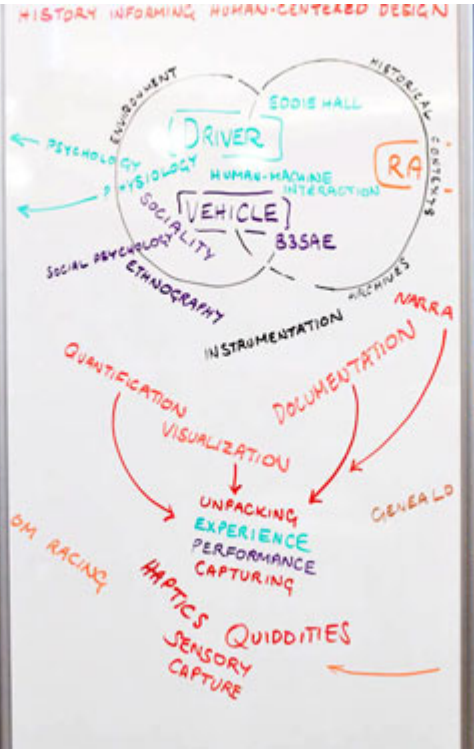 HISTORY INFORMING HUMAN-CENTERED DESIGN
ENVIRONMENT
HISTORICAL CONTENTS
EDDIE HALL
[DRIVER]
PSYCHOLOGY
PHYSIOLOGY
HUMAN-MACHINE
INTERACTION
RA
SOCIALITY
[VEHICLE]
B35AE
SOCIAL PSYCHOLOGY
ETHNOGRAPHY
ARCHIVES
INSTRUMENTATION
NARRA
QUANTIFICATION
DOCUMENTATION
VISUALIZATION
UNPACKING
EXPERIENCE
PERFORMANCE
CAPTURING
GENEALO
OM RACING
HAPTICS
QUIDDITIES
SENSORY
CAPTURE